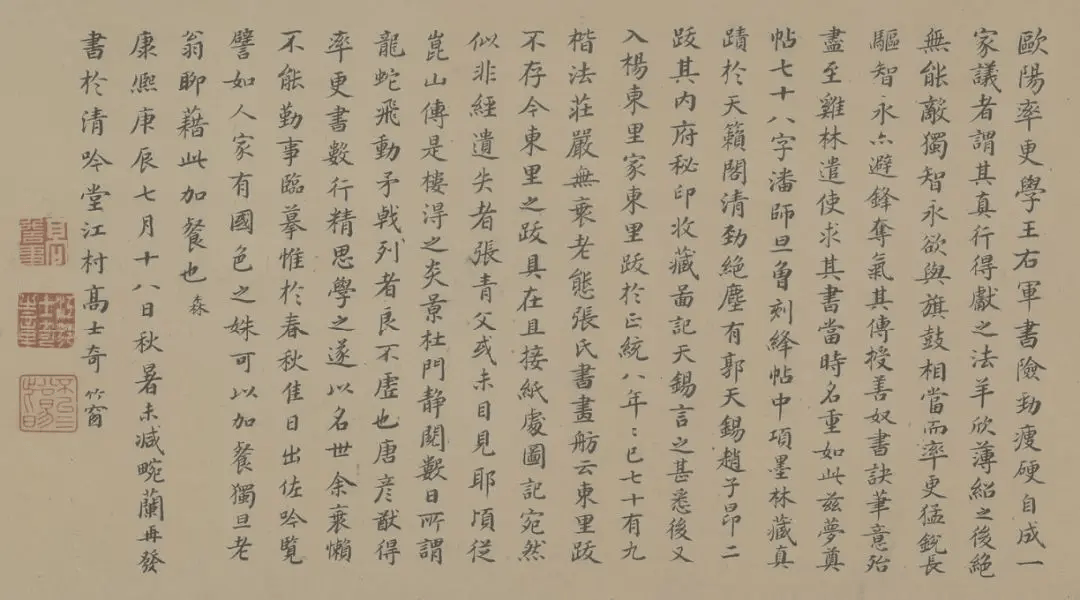 歐陽率更學王右軍書險勁瘦硬自成一
家議者謂其真行得獻之法羊欣薄紹之後絕
無能敵獨智永欲與旗鼓相當而率更猛銳長
驅智永亦避鋒奪氣其傳授善奴書訣筆意殆
盡至雞林遣使求其書當時名重如此茲夢奠
帖七十八字潘師旦曾刻絳帖中項墨林藏真
蹟於天籟閣清勁絕塵有郭天錫趙子昂二
跋其內府秘印收藏啚記天錫言之甚悉後又
入楊東里家東里跋於正統八年年已七十有九
楷法莊嚴無衰老態張氏書畫舫云東里跋
不存今東里之跋具在且接紙處圖記宛然
似非經遺失者張青父或未目見耶頃從
崑山傳是樓得之炎景杜門静閱數日所謂
龍蛇飛動矛戟列者良不虛也唐彦猷得
率更書數行精思學之遂以名世余衰懶
不能勤事臨摹惟於春秋佳日出佐吟覧
譬如人家有國色之姝可以加餐獨旦老
翁聊藉此加餐也 森
康熙庚辰七月十八日秋暑未减畹蘭再發
書於清吟堂江村高士奇 竹窗